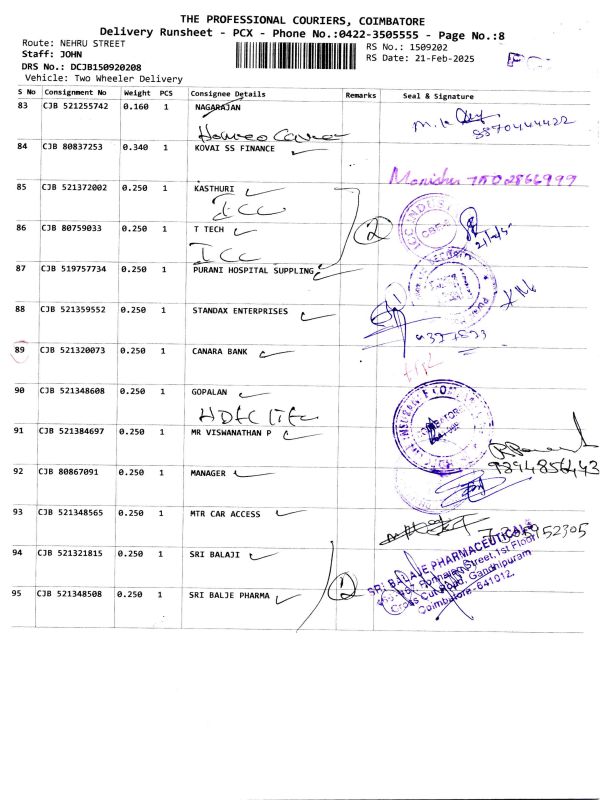 THE PROFESSIONAL COURIERS, COIMBATORE
Delivery Runsheet - PCX - Phone No.:0422-3505555 - Page No.:8
Route: NEHRU STREET
RS No.: 1509202
Staff: JOHN
RS Date: 21-Feb-2025
DRS No.: DCJB150920208
Vehicle: Two Wheeler Delivery
S No Consignment No Weight PCS Consignee Details Remarks Seal & Signature
83 CJB 521255742 0.160 1 NAGARAJAN
9870444422
84 CJB 80837253 0.340 1 KOVAI SS FINANCE
85 CJB 521372002 0.250 1 KASTHURI
ICC
2
86 CJB 80759033 0.250 1 T TECH
ICC
87 CJB 519757734 0.250 1 PURANI HOSPITAL SUPPLING
88 CJB 521359552 0.250 1 STANDAX ENTERPRISES
89 CJB 521320073 0.250 1 CANARA BANK
90 CJB 521348608 0.250 1 GOPALAN
HDFC
91 CJB 521384697 0.250 1 MR VISWANATHAN P
9894856443
92 CJB 80867091 0.250 1 MANAGER
93 CJB 521348565 0.250 1 MTR CAR ACCESS
94 CJB 521321815 0.250 1 SRI BALAJI
2
SRI BALAJE PHARMACEUTICALS
Street, 1st Floor
Cross Cut Road, Gandhipuram
Coimbatore - 641012.
95 CJB 521348508 0.250 1 SRI BALJE PHARMA